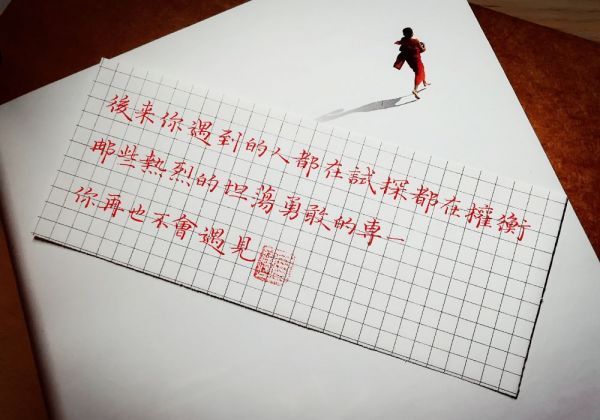 後来你遇到的人都在試探都在權衡
那些熱烈的坦蕩勇敢的専一
你再也不會遇見